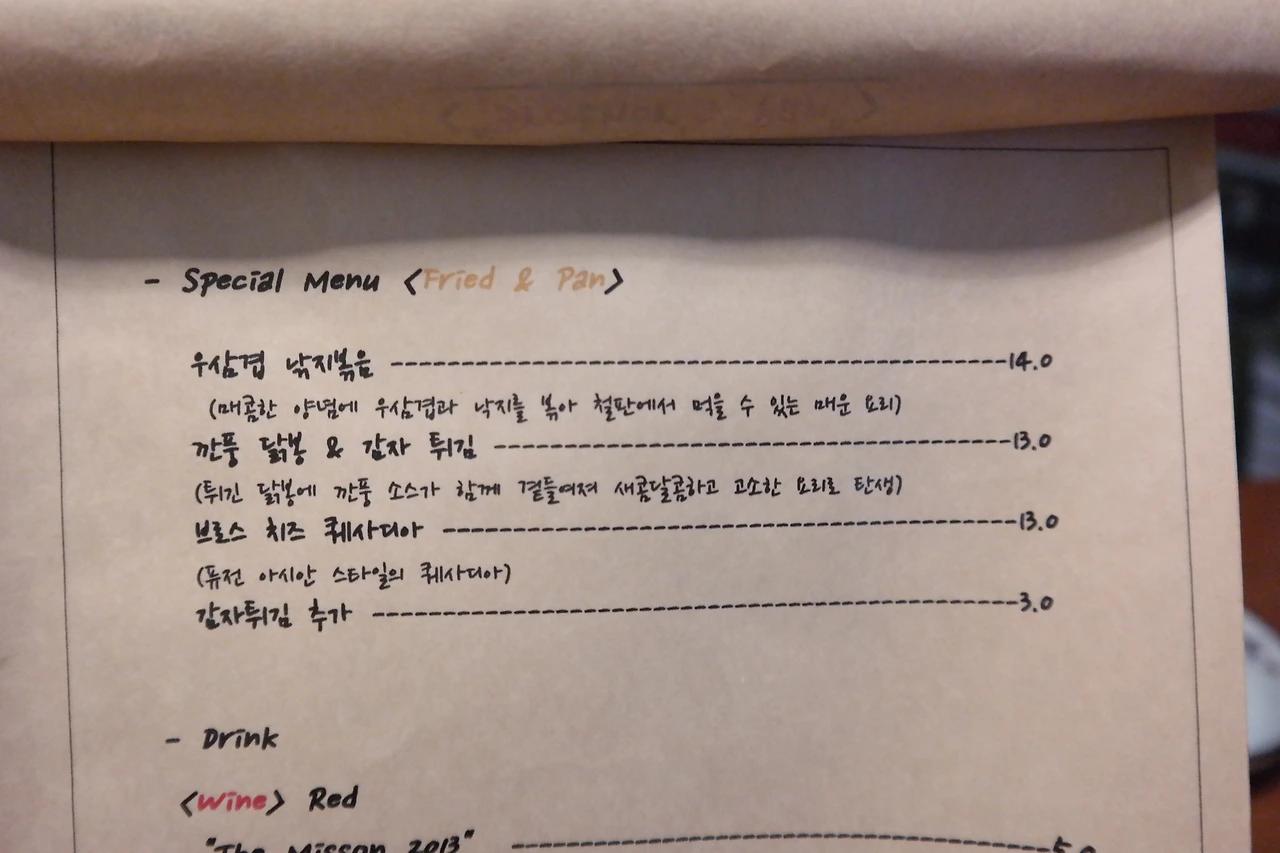 - Special Menu <Fried & Pan>
우삼겹 낚지볶음 ---------- 14.0
(매콤한 양념에 우삼겹과 낙지를 볶아 철판에서 먹을 수 있는 매운 요리)
깐풍 닭봉 & 감자 튀김 ---------- 13.0
(튀긴 닭봉에 깐풍 소스가 함께 곁들여져 새콤달콤하고 고소한 요리로 탄생)
브로스 치즈 퀘사디아 ---------- 13.0
(퓨전 아시안 스타일의 퀘사디아)
감자튀김 추가 ---------- 3.0
- Drink
<Wine> Red
"The Misson 2013" ---------- 5.0